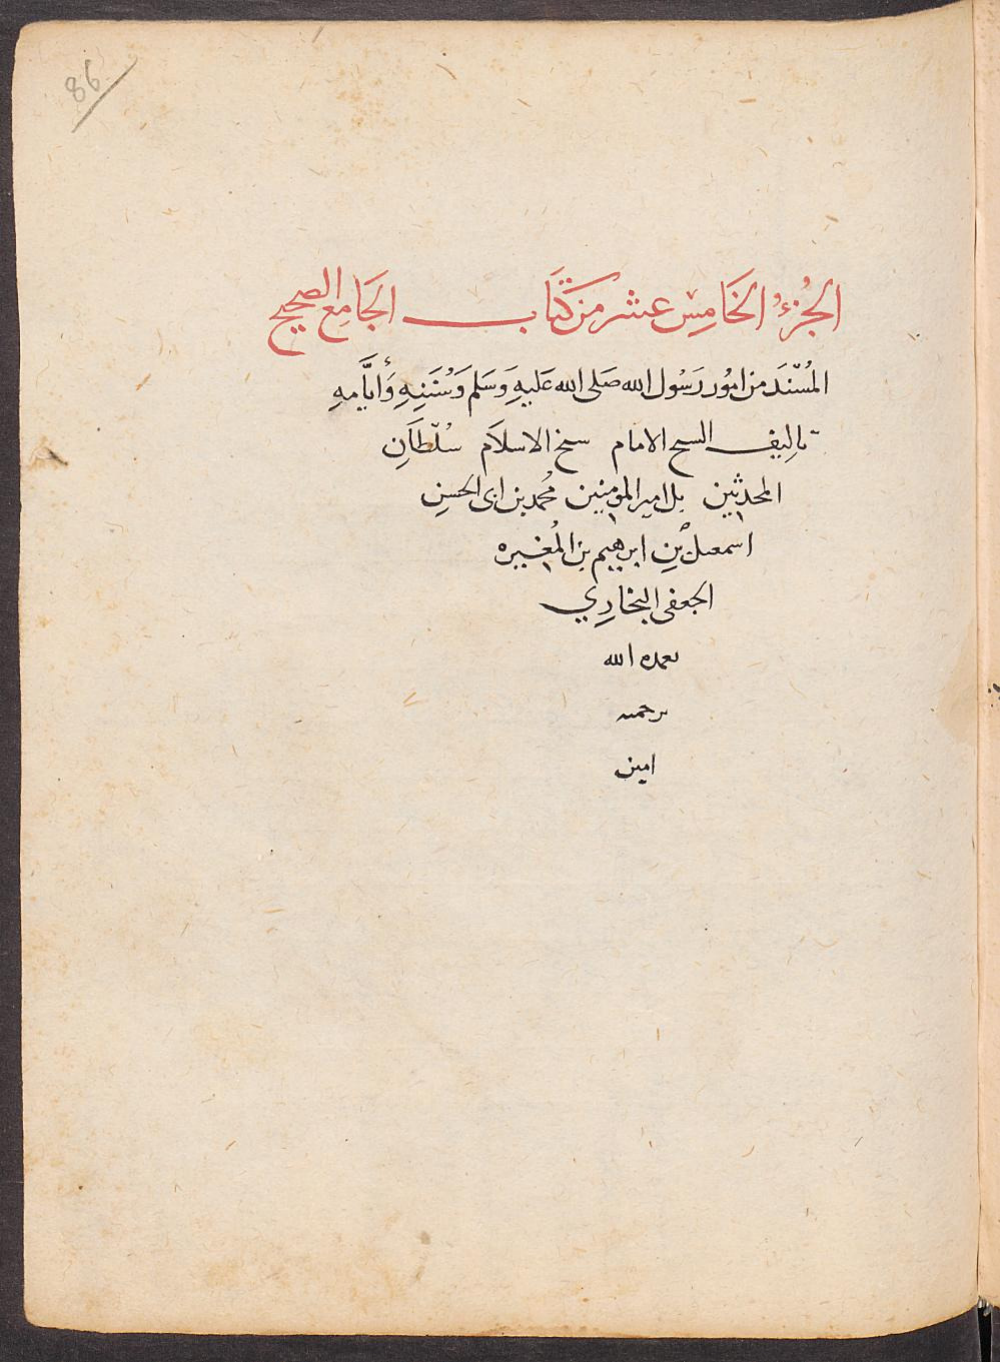 86
الجُزءُ الخَامِس عشر من كتَاب الجَامِع الصحيح
المُسْنَدَ من امُور رَسُول الله صَلى الله عَليهِ وَسَلم وَسُنَنِهِ وَأيَّامهِ
تالِيف السح الامام سخ الاسلَام سُلْطَانِ
المحدثين بل امير المؤمنين مُحمد بن ابى الحسنِ
اسمعىل بْنِ ابرهيم بن المُغيره
الجعفى البخارِي
تغمده الله
برحمته
امين